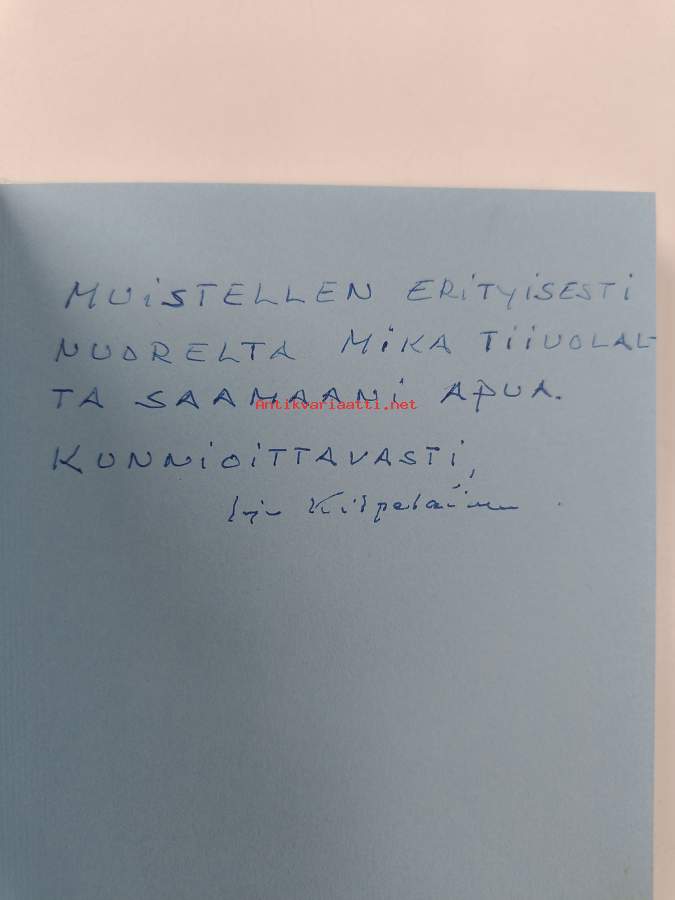 MUISTELLEN ERITYISESTI
NUORELTA MIKA TIIVOLAL-
TA SAAMAANI APUA.
Antikvariaatti.net
KUNNIOITTAVASTI,
Kilpeläinen